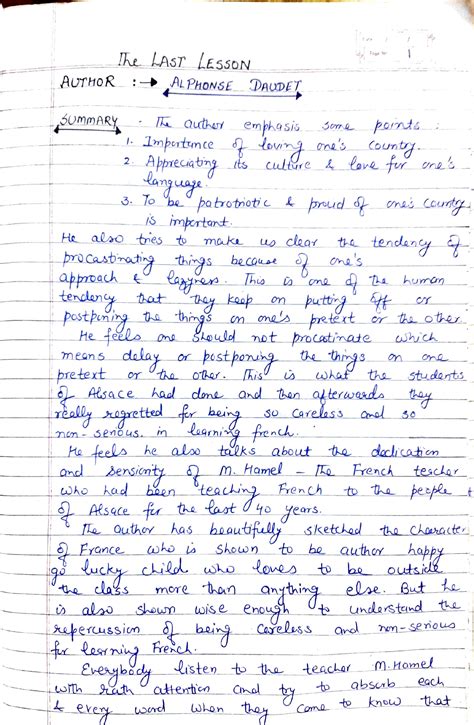 1
The LAST LESSON
AUTHOR :→ ALPHONSE DAUDET
SUMMARY : The author emphasis some points :
1. Importance of loving one's country.
2. Appreciating its culture & love for one's
language.
3. To be patrotriotic & proud of one's country
is important.
He also tries to make us clear the tendency of
procastinating things because of one's
approach & lazyness. This is one of the human
tendency that they keep on putting off or
postpining the things on one's pretext or the other
He feels one should not procastinate which
means delay or postponing the things on one
pretext or the other. This is what the students
of Alsace had done and then afterwards they
really regretted for being so careless and so
non-serious in learning french.
He feels he also talks about the dedication
and sensionity of M. Hamel - The French teacher
who had been teaching French to the people
of Alsace for the last 40 years.
The author has beautifully sketched the character
of France who is shown to be author happy
go lucky child who loves to be outside
the class more than anything else. But he
is also shown wise enough to understand the
repercussion of being careless and non-serious
for learning French.
Everybody listen to the teacher M. Hamel
with rath attention and try to absorb each
& every word when they came to know that